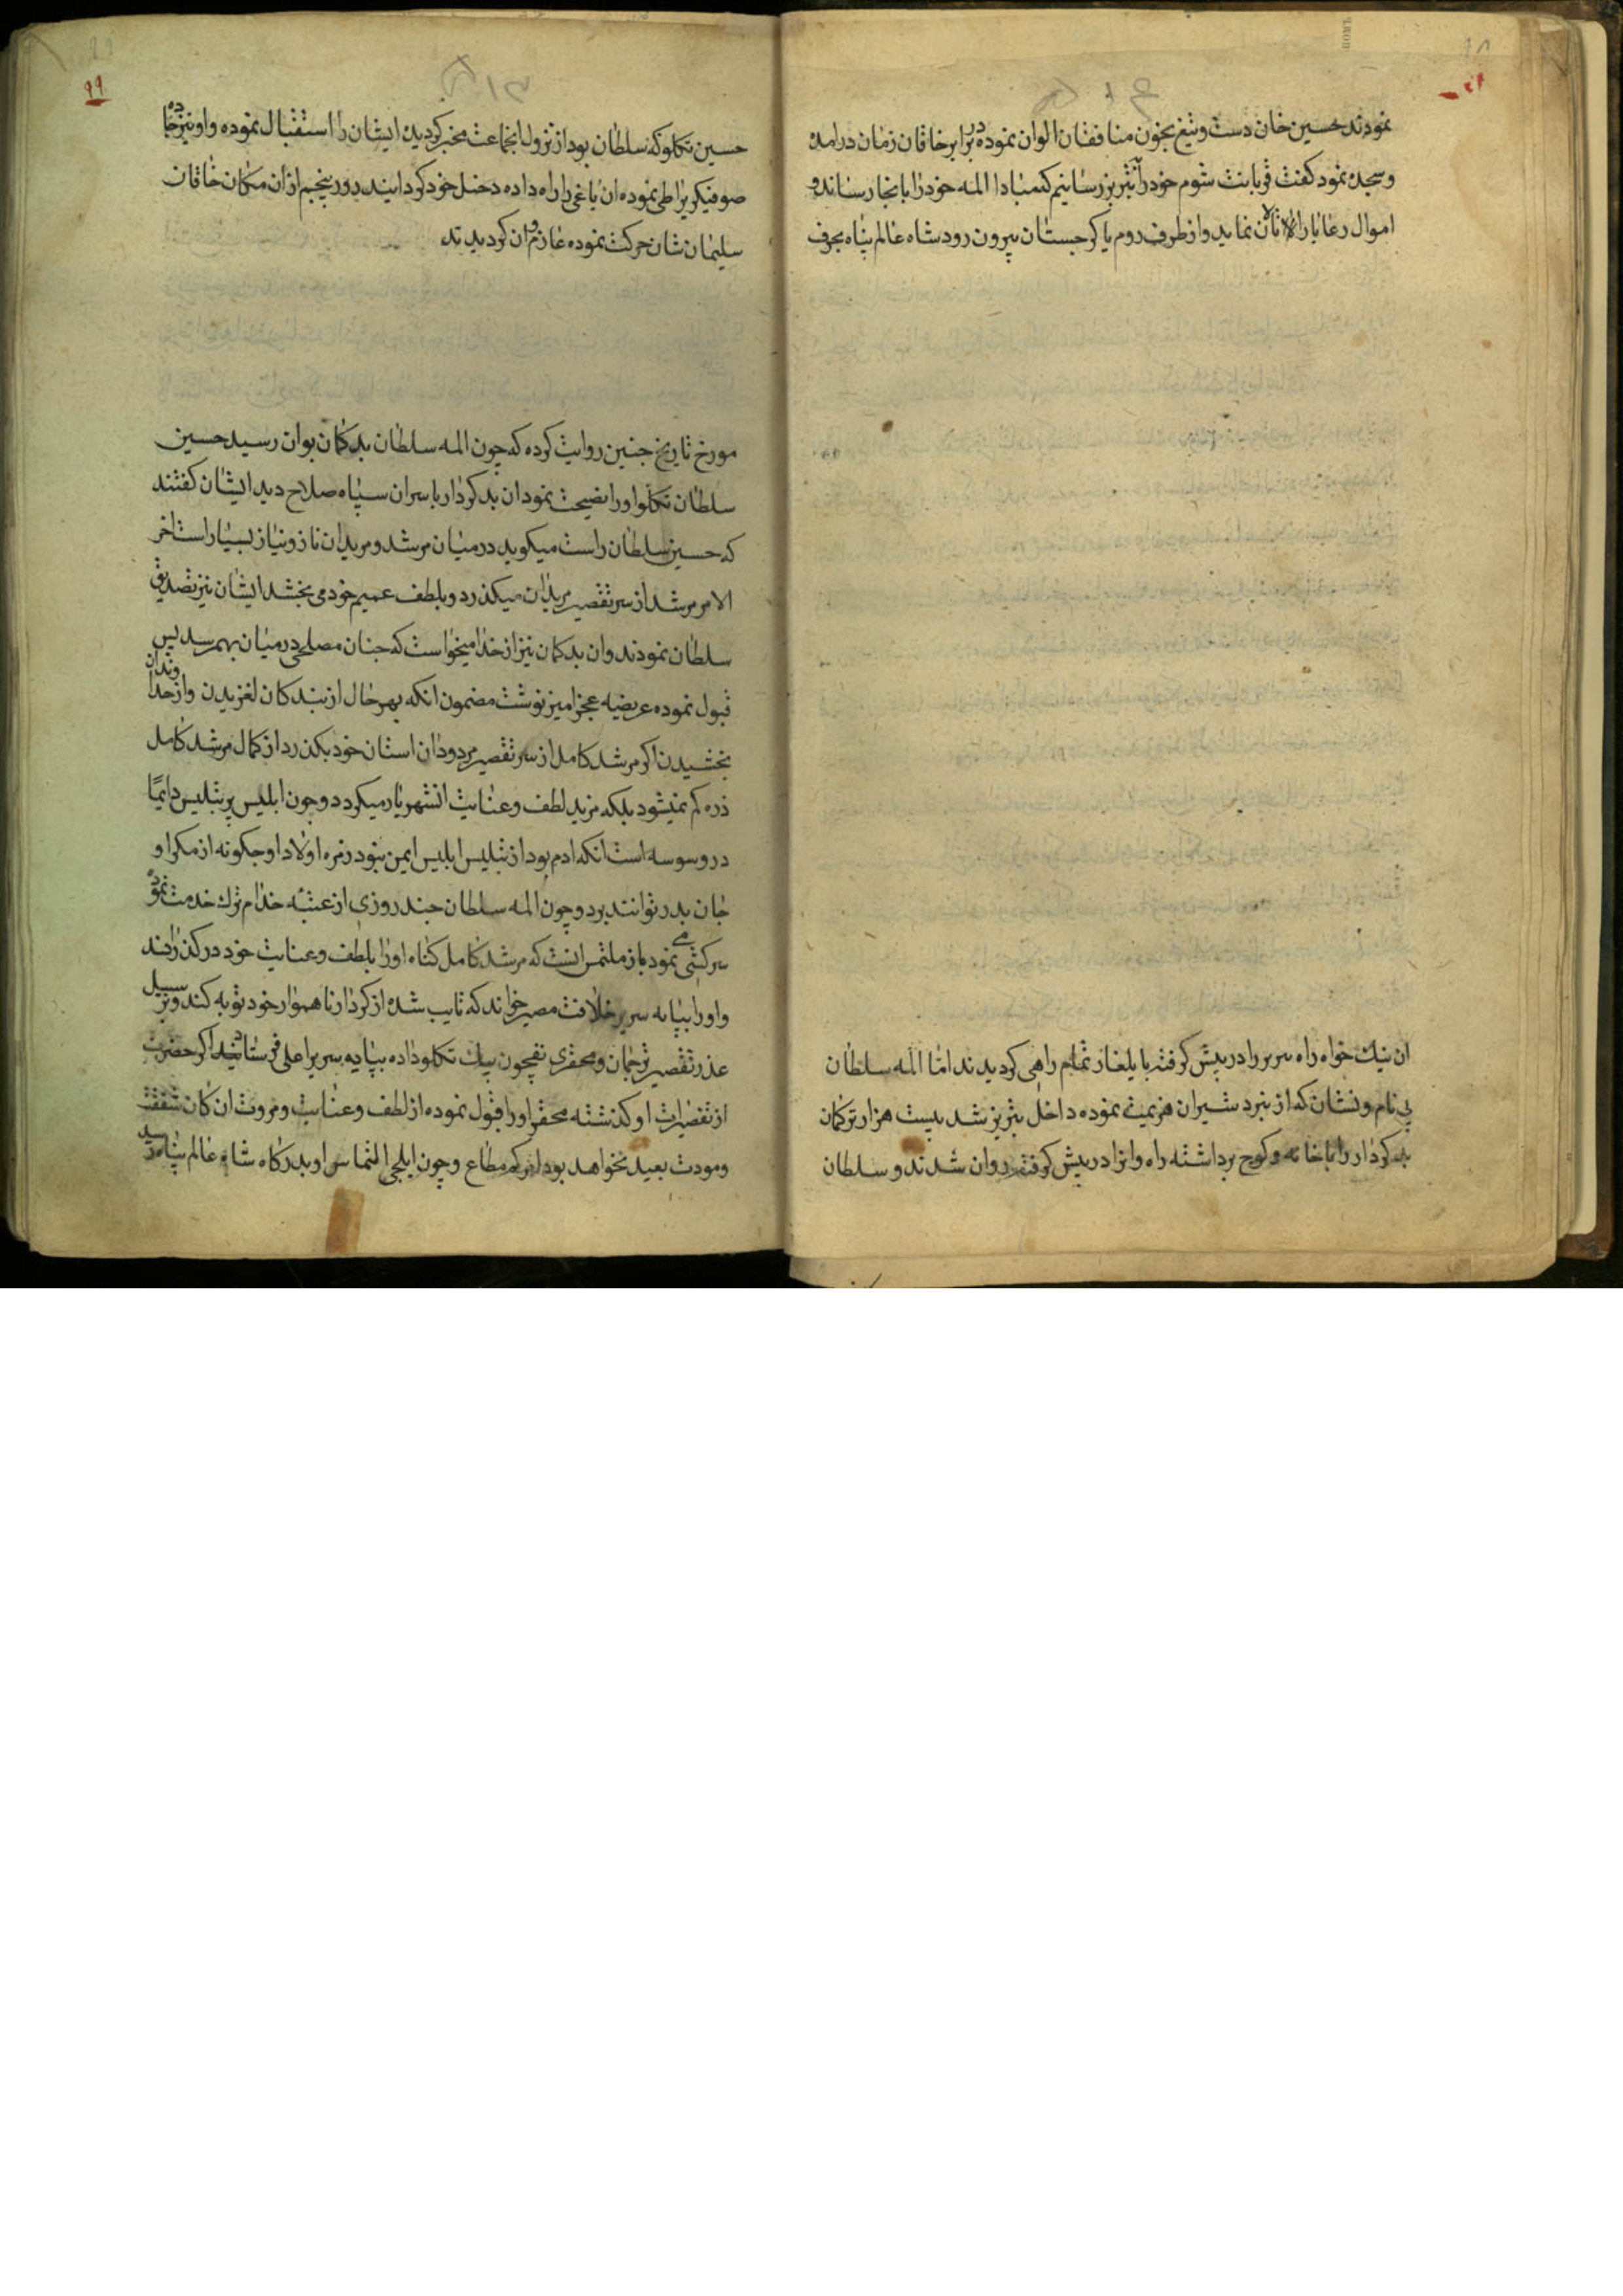 نمودند حسین خان دست و تیغ بخون منافقان الوان نموده در برابر خاقان زمان درامده
و سجده نمود کفت قربانت شوم خود را بتبریز رسانیم که مبادا المه خود را بانجا رساند و
اموال رعایا را تالان نماید و از طرف روم یا کرجستان بیرون رود شاه عالم پناه بحرف
ان نیك خواه راه سربر را در پیش کرفته با یلغاز تمام راهی کردیدند اما المه سلطان
بی نام و نشان که از نبرد شیران هزیمت نموده داخل تبریز شد بیست هزار ترکمان
بد کردار را با خانه و کوج برداشته راه وانرا در پیش کرفته روان شدند و سلطان
۹۹
حسین تکلو که سلطان بود از نزول انجماعت مخبر کردیده ایشان را استقبال نموده و او نیز جاده
صوفیکریرا طی نموده ان یاغی را راه داده دخیل خود کردانیند روز پنجم از ان مکان خاقان
سلیمان شان حرکت نموده عازم وان کردیدند
مورخ تاریخ جنین روایت کرده که چون المه سلطان بد کمان بوان رسید حسین
سلطان تکلو او را نصیحت نمود ان بد کردار با سران سپاه صلاح دید ایشان کفتند
که حسین سلطان راست میکوید در میان مرشد و مریدان ناز و نیاز بسیار است اخر
الامر مرشد از سر تقصیر مریدان میکذرد و بلطف عمیم خود می بخشد ایشان نیز تصدیق
سلطان نمودند و ان بد کمان نیز از خدا میخواست که جنان مصلحی در میان بهم رسد پس
قبول نموده عریضه عجز امیز نوشت مضمون انکه بهر حال از بندکان لغزیدن و از خداوندان
بخشیدن اکر مرشد کامل از سر تقصیر مردودان استان خود بکذرد از کمال مرشد کامل
ذره کم نمیشود بلکه مزید لطف و عنایت انشهریار میکردد و چون ابلیس پر تلبیس دایما
در وسوسه است انکه ادم بود از تلبیس ابلیس ایمن نبود زمره اولاد او جکونه از مکر او
جان بدر توانند برد و چون المه سلطان جند روزی از عتبه خدام ترك خدمت نموده
سرکشی می نمود باز ملتمس انست که مرشد کامل کناه او را بلطف و عنایت خود در کذرانند
و او را بپایه سریر خلافت مصیر خواند که تایب شده از کردار ناهموار خود توبه کند و بر سبیل
عذر تقصیر ترجمان و محقری تقچون بیك تکلو داده بپایه سریر اعلی فرستاد اکر حضرت
از تقصیرات او کذشته محقر او را قبول نموده از لطف و عنایت و مروت ان کان شفقت
و مودت بعید نخواهد بود امرکم مطاع و چون ایلجی التماس او بدرکاه شاه عالم پناه رسید